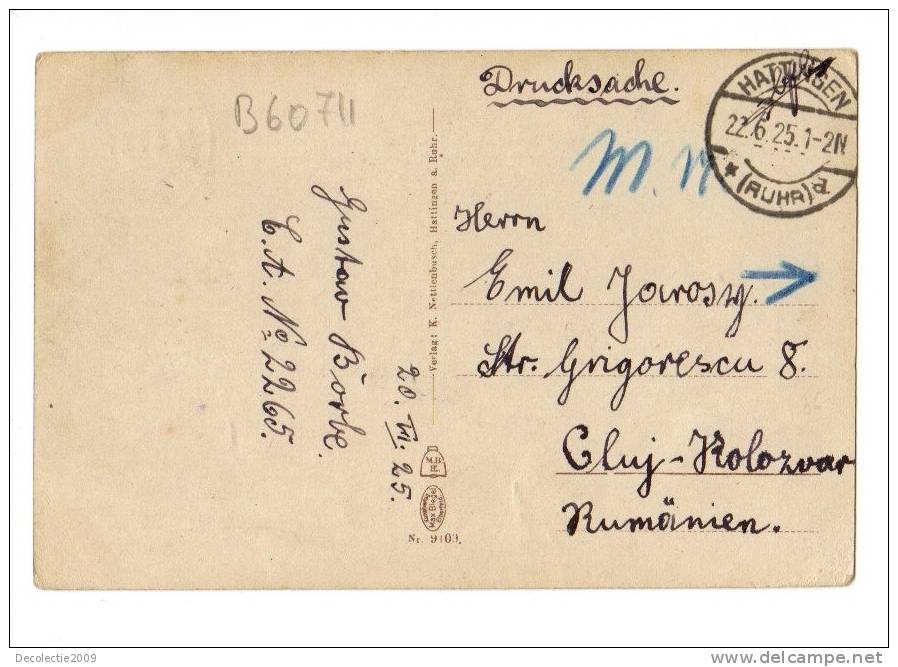 Drucksache.
B60711
HATTINGEN
22.6.25.1-2N
* (RUHR) d
M.
Herrn
Emil Jarosy.
Str. Grigorescu 8.
Cluj-Kolozvar
Rumänien.
Gustav Börbe.
C.A. No 2265.
20. VI. 25.
Verlag: K. Nettlenbusch, Hattingen a. Ruhr.
M.B.
Max Biegel
Nr. 9103.
Decolectie2009
www.delcampe.net